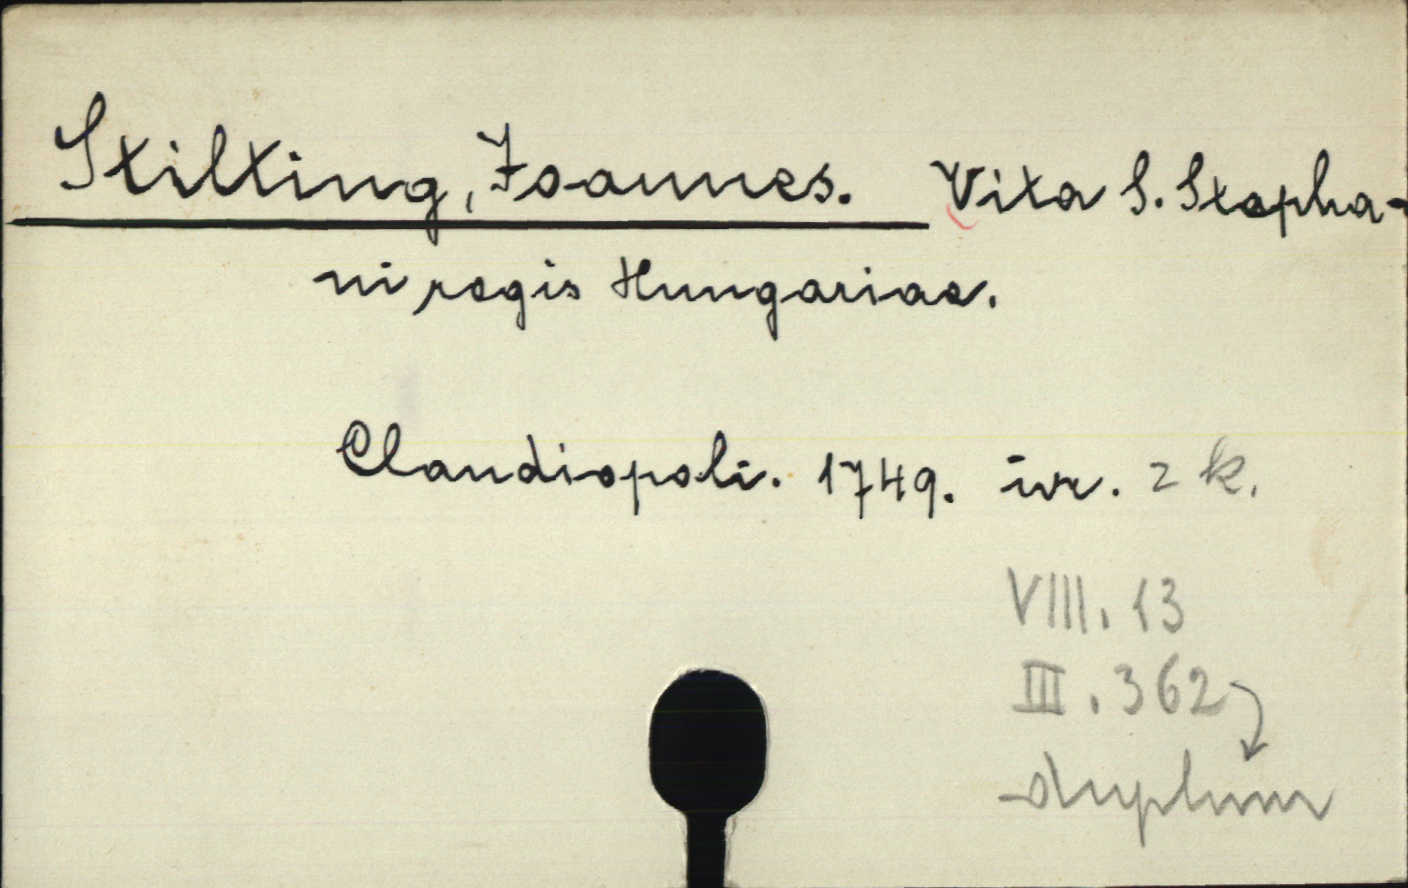 Stilting, Joannes. Vita S. Stepha-
ni regis Hungariae.
Claudiopoli. 1749. ivr. 2 k.
VIII. 13
III. 362
duplum